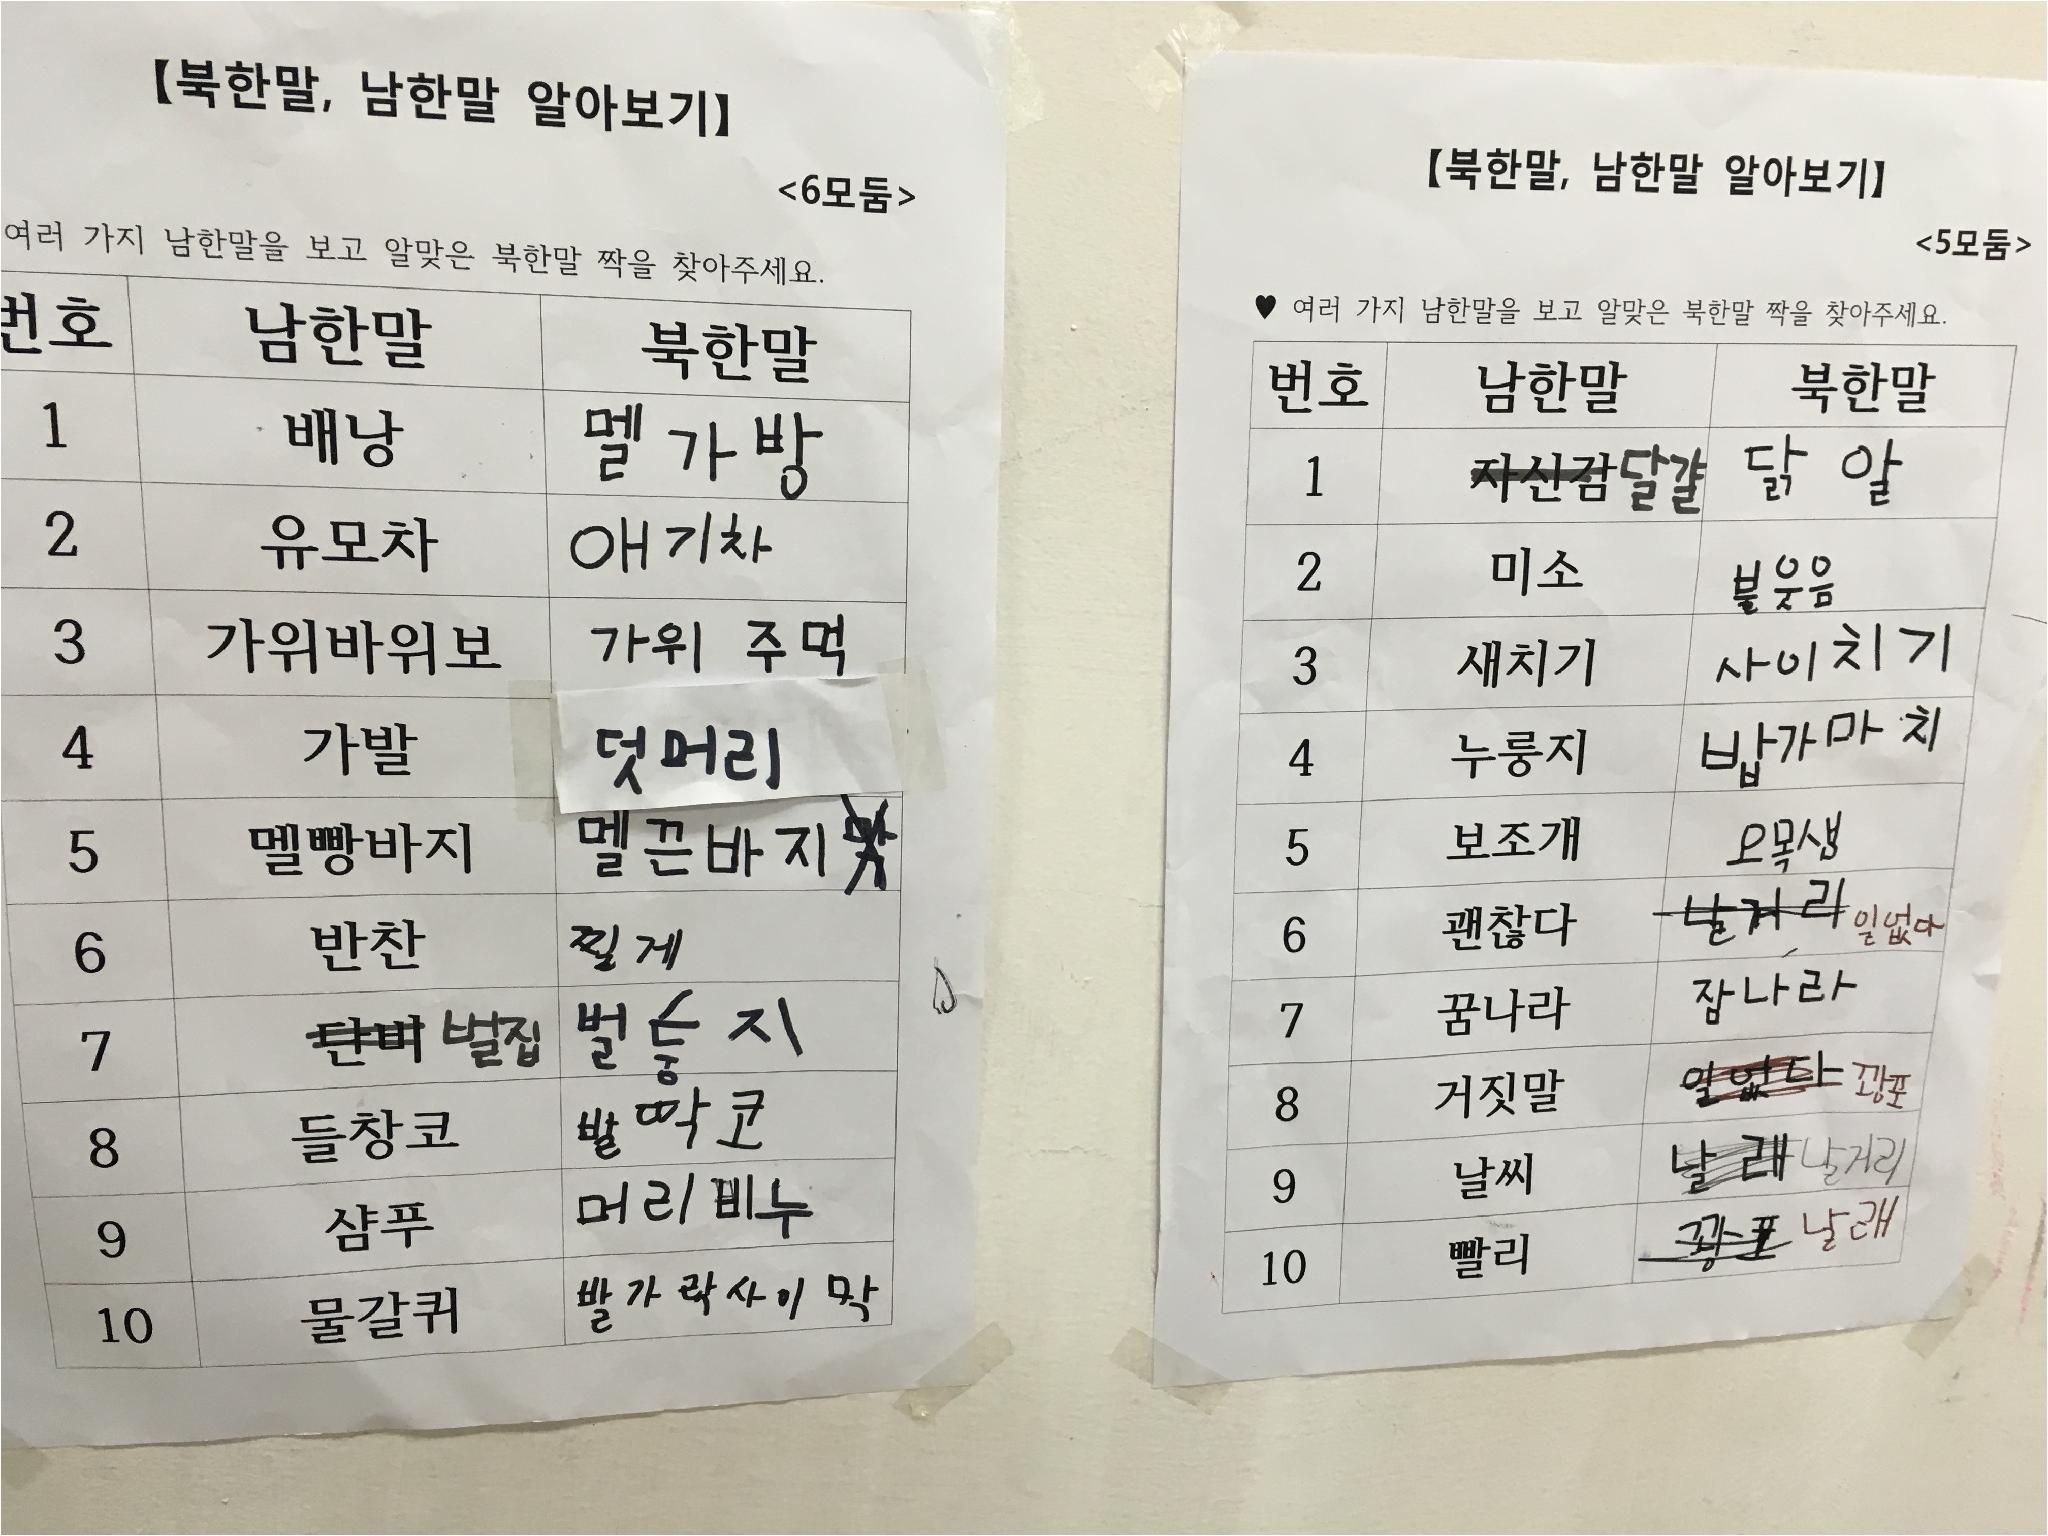 【북한말, 남한말 알아보기】
<6모둠>
여러 가지 남한말을 보고 알맞은 북한말 짝을 찾아주세요.
번호 남한말 북한말
1 배낭 멜가방
2 유모차 애기차
3 가위바위보 가위 주먹
4 가발 덧머리
5 멜빵바지 멜끈바지
6 반찬 찔게
7 단비 벌집 벌둥지
8 들창코 발딱코
9 샴푸 머리비누
10 물갈퀴 발가락사이막
【북한말, 남한말 알아보기】
<5모둠>
♥ 여러 가지 남한말을 보고 알맞은 북한말 짝을 찾아주세요.
번호 남한말 북한말
1 자신감 달걀 닭알
2 미소 볼웃음
3 새치기 사이치기
4 누룽지 밥가마치
5 보조개 오목샘
6 괜찮다 날거리 일없다
7 꿈나라 잠나라
8 거짓말 일없다 꽝포
9 날씨 날래 날거리
10 빨리 꽝포 날래